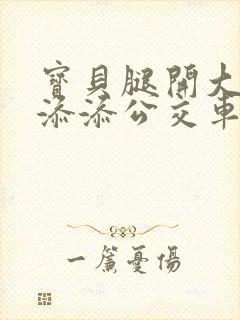 寶貝腿開大
添添公交車
一簾憂傷